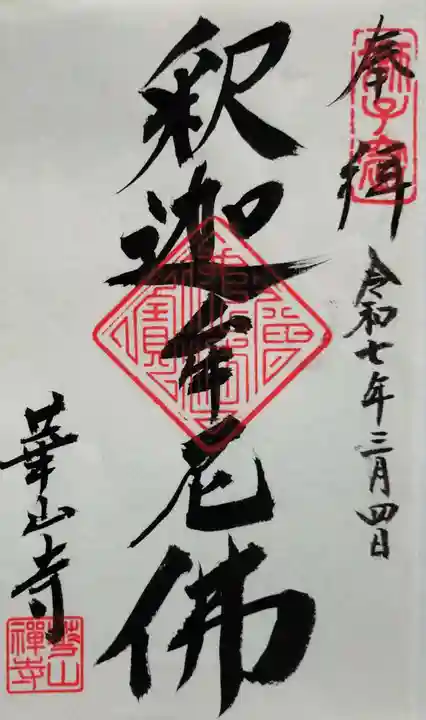 奉拝
令和七年三月四日
釈迦牟尼佛
華山寺
獅子窟
華山禪寺